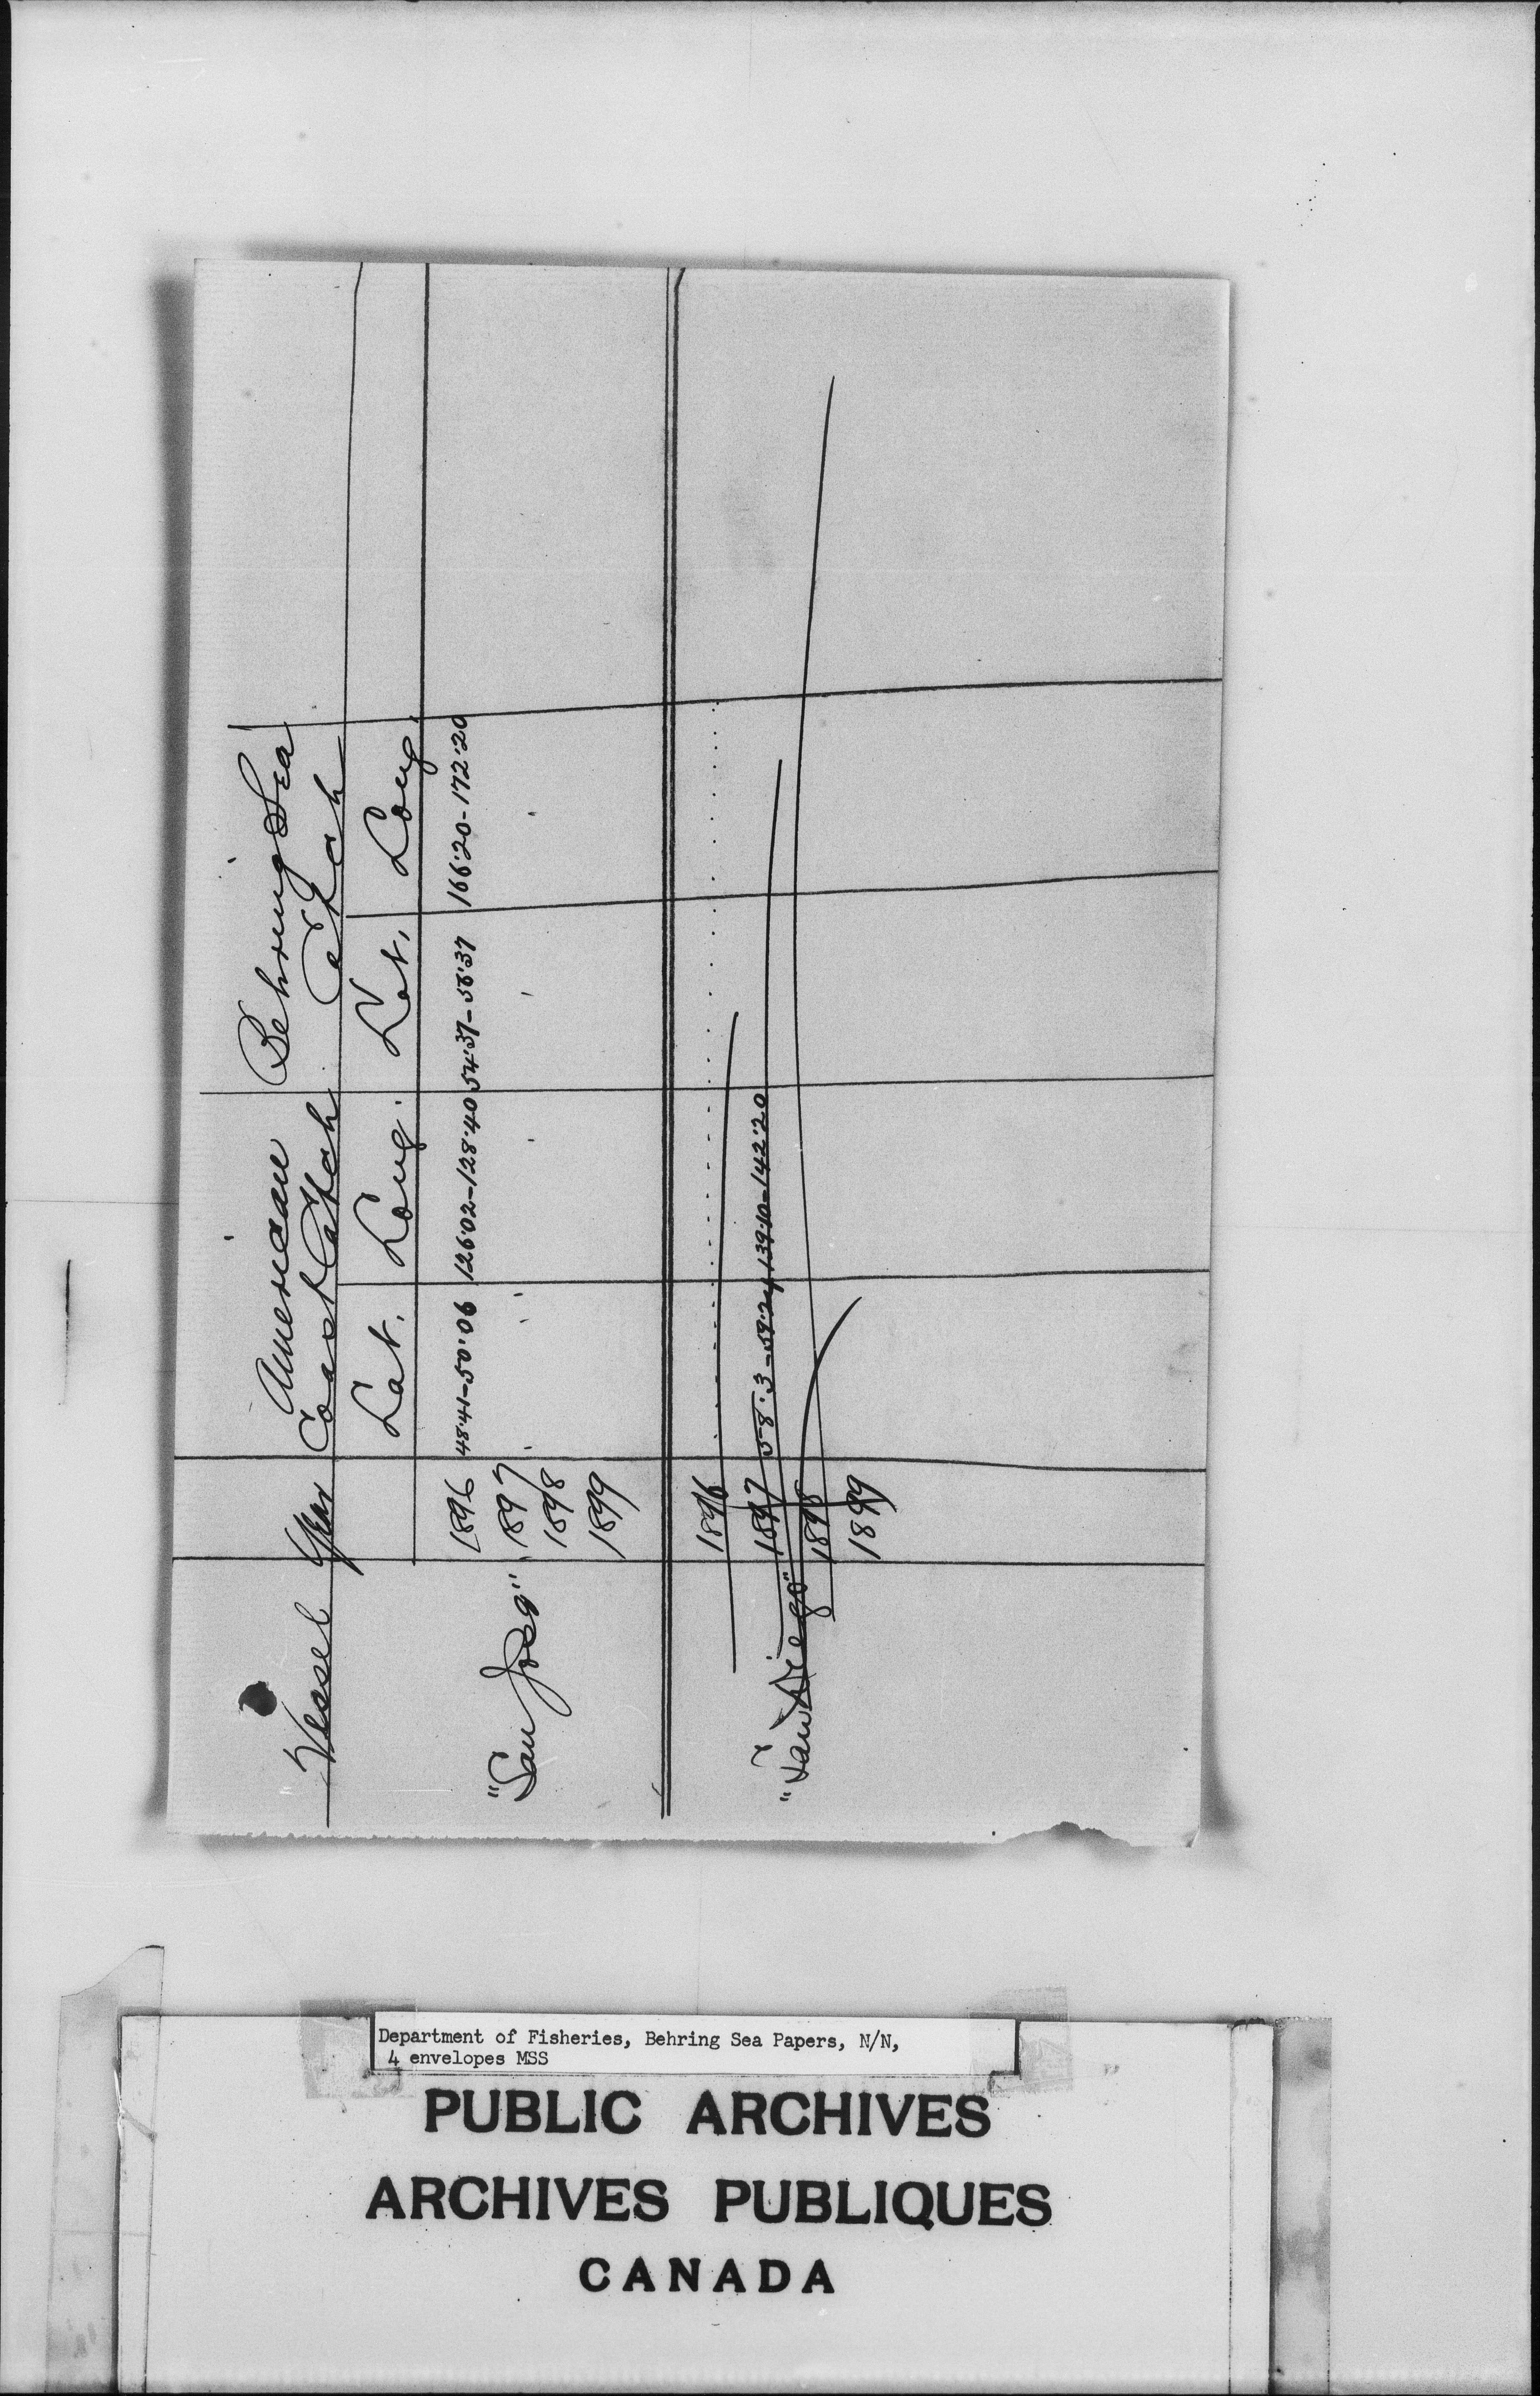 Vessel Year American Behring Sea
Coast Catch Catch
Lat. Long. Lat. Long.
"San José" 1896 48.41-50.06 126.02-128.40 54.37-56.37 166.20-172.20
1897
1898
1899
"San Diego" 1896
1897 58.3-59.24 139.10-142.20
1898
1899
Department of Fisheries, Behring Sea Papers, N/N,
4 envelopes MSS
PUBLIC ARCHIVES
ARCHIVES PUBLIQUES
CANADA